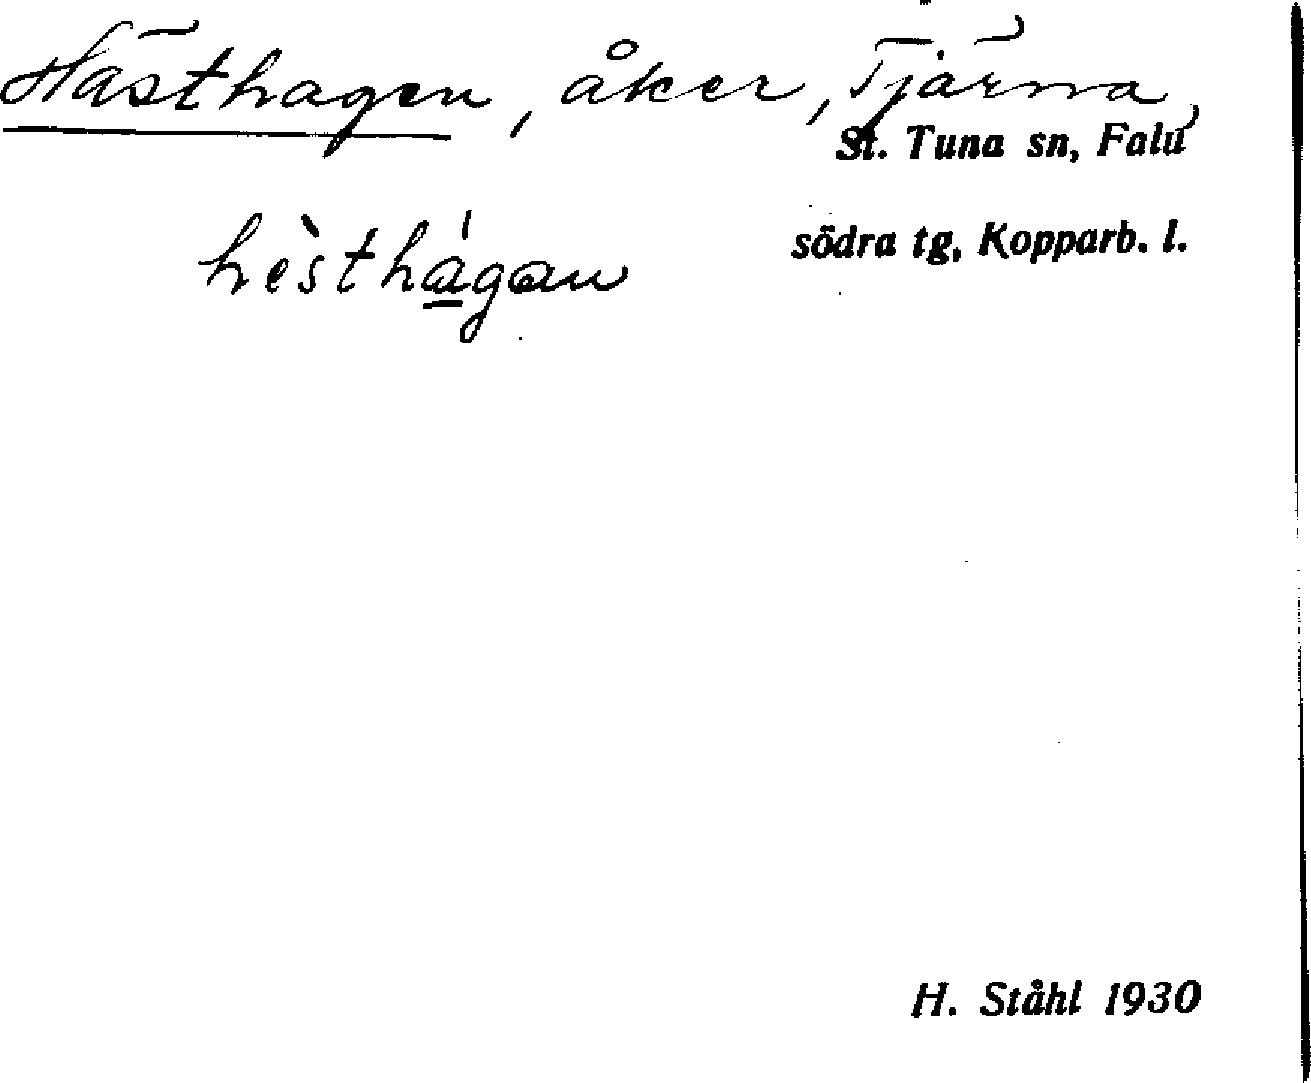 Hästhagen, åker, Tjärna,
St. Tuna sn, Falu
södra tg, Kopparb. l.
hèsthágan
H. Ståhl 1930